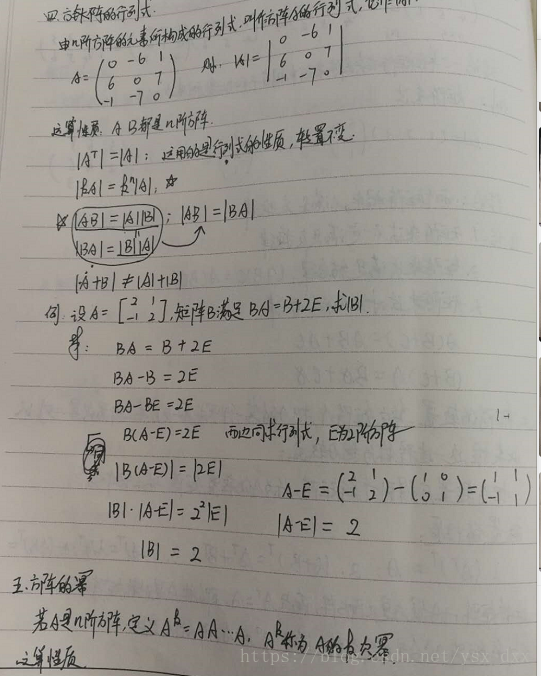 四. 方阵的行列式.
由n阶方阵的元素所构成的行列式.叫作方阵A的行列式,
A=(0 -6 1 则. |A|=|0 -6 1|
6 0 7 6 0 7
-1 -7 0) -1 -7 0
运算性质. A B都是n阶方阵.
|Aᵀ|=|A|; 运用的是行列式的性质,转置不变.
|kA|=kⁿ|A|, ☆
☆ |AB|=|A||B| ; |AB|=|BA|
|BA|=|B||A|
|A+B|≠|A|+|B|
例. 设A=[2 1
-1 2],矩阵B满足BA=B+2E,求|B|.
解: BA = B+2E
BA-B = 2E
BA-BE=2E
B(A-E)=2E 两边同求行列式, E为2阶方阵
|B(A-E)|=|2E|
A-E=(2 1
-1 2)-(1 0
0 1)=(1 1
-1 1)
|B|·|A-E|=2²|E| |A-E|=2
|B|=2
五.方阵的幂
若A是n阶方阵,定义Aᵏ=AA…A, Aᵏ称为A的k次幂.
运算性质
https://blog.csdn.net/ysx_dxx